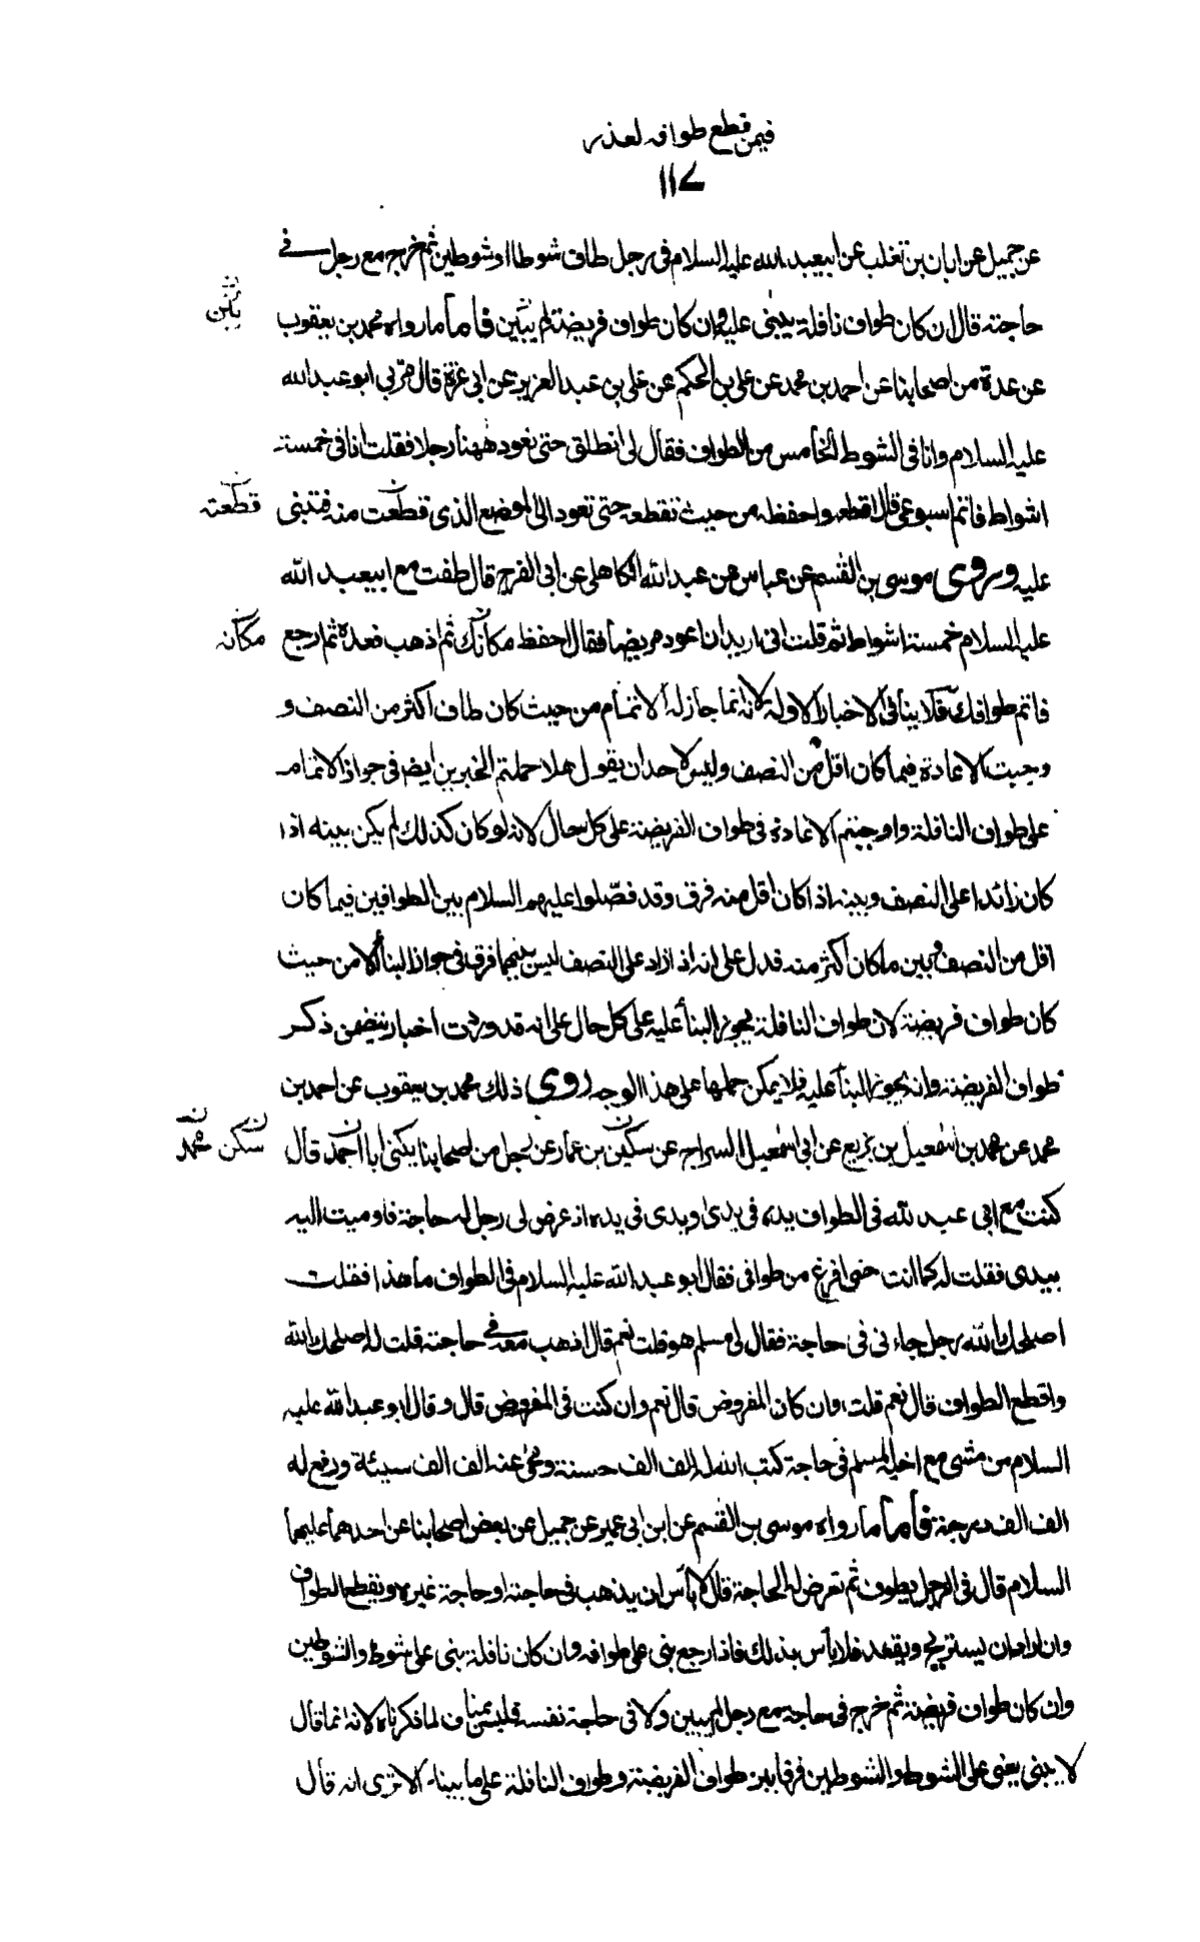 فيمن قطع طوافه لعذر
١١٧
عن جميل عن ابان بن تغلب عن ابيعبد الله عليه السلام في رجل طاف شوطا او شوطين ثم خرج مع رجل في
حاجته قال ان كان طواف نافلة يبنى عليه وان كان طواف فريضة لم يبين فاما ما رواه محمد بن يعقوب
يبن
عن عدة من اصحابنا عن احمد بن محمد عن علي بن الحكم عن علي بن عبد العزيز عن ابي غرة قال مرّ بي ابو عبد الله
عليه السلام وانا في الشوط الخامس من الطواف فقال لي انطلق حتى نعود ههنا رجلا فقلت انا في خمسة
اشواط فاتم اسبوعي قال اقطعه واحفظه من حيث تقطعه حتى تعود الى الموضع الذي قطعت منه فتبنى
قطعته
عليه وروى موسى بن القسم عن عباس عن عبد الله الكاهلي عن ابي الفرج قال طفت مع ابيعبد الله
عليه السلام خمسة اشواط ثم قلت اني اريد ان اعود مريضا فقال احفظ مكانك ثم اذهب فعده ثم ارجع
مكانه
فاتم طوافك فلا ينافي الاخبار الاولة لانه انما جاز له الاتمام من حيث كان طاف اكثر من النصف و
وجبت الاعادة فيما كان اقل من النصف وليس لاحد ان يقول هلا حملتم الخبرين ايضا في جواز الاتمام
على طواف النافلة واوجبتم الاعادة في طواف الفريضة على كل حال لانه لو كان كذلك لم يكن بينه اذا
كان زائدا على النصف وبينه اذا كان اقل منه فرق وقد فصّلوا عليهم السلام بين الطوافين فيما كان
اقل من النصف وبين ما كان اكثر منه فدل على انه اذا زاد على النصف ليس بينهما فرق في جواز البنأ الا من حيث
كان طواف فريضة لان طواف النافلة يجوز البنأ عليه على كل حال على انه قد وردت اخبار يتضمن ذكر
طواف الفريضة وانه يجوز البنأ عليه فلا يمكن حملها على هذا الوجه روى ذلك محمد بن يعقوب عن احمد بن
محمد عن محمد بن اسمعيل بن بزيع عن ابي اسمعيل السراج عن سكين بن عمار عن رجل من اصحابنا يكنى ابا احمد قال
سكن محمد
كنت مع ابي عبد الله في الطواف يده في يدى ويدى في يده اذ عرض لي رجل له حاجة فاوميت اليه
بيدى فقلت له كما انت حتى افرغ من طوافي فقال ابو عبد الله عليه السلام في الطواف ما هذا فقلت
اصلحك الله رجل جاءني في حاجة فقال لي مسلم هو قلت نعم قال اذهب معه في حاجته قلت له اصلحك الله
واقطع الطواف قال نعم قلت وان كان المفروض قال نعم وان كنت في المفروض قال وقال ابو عبد الله عليه
السلام من مشى مع اخيه المسلم في حاجة كتب الله له الف الف حسنة ومحى عنه الف الف سيئة ورفع له
الف الف درجة فاما ما رواه موسى بن القسم عن ابن ابي عمير عن جميل عن بعض اصحابنا عن احدهما عليهما
السلام قال في الرجل يطوف ثم تعرض له الحاجة قال لا بأس ان يذهب في حاجته او حاجة غيره ويقطع الطواف
وان اراد ان يستريح ويقعد فلا بأس بذلك فاذا رجع بنى على طوافه وان كان نافلة بنى على شوط والشوطين
وان كان طواف فريضة ثم خرج في حاجة مع رجل لم يبن ولا في حاجة نفسه فليس بمناف لما ذكرناه لانه انما قال
لا يبنى يعني على الشوط والشوطين فرقا بين طواف الفريضة وطواف النافلة على ما بيناه الا ترى انه قال